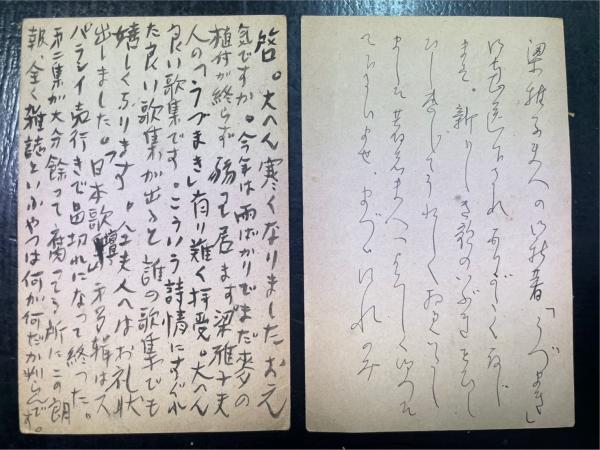 啓。大へん寒くなりました お元
気ですか。今年は雨ばかりでまだ麦の
植付が終らず 弱って居ます 梁雅子夫
人の「うづまき」有り難く拝受。大へん
良い歌集です。こういう詩情にすぐれ
た良い歌集が出ると 誰の歌集でも
嬉しくなります。夫人へはお礼状
出しました。「日本歌壇」第3輯はス
バラシイ売行きで品切れになって終った。
第二集が大分餘って腐ってる所にこの朗
報、全く雑誌といふやつは何が何だか判らんです。
梁雅子夫人の御新著「うづまき」
御恵送下され ありがたく存じ
ます。新しき歌のいぶきを
うれしく
夫人へよろしく
て下さいませ。まづ御礼のみ